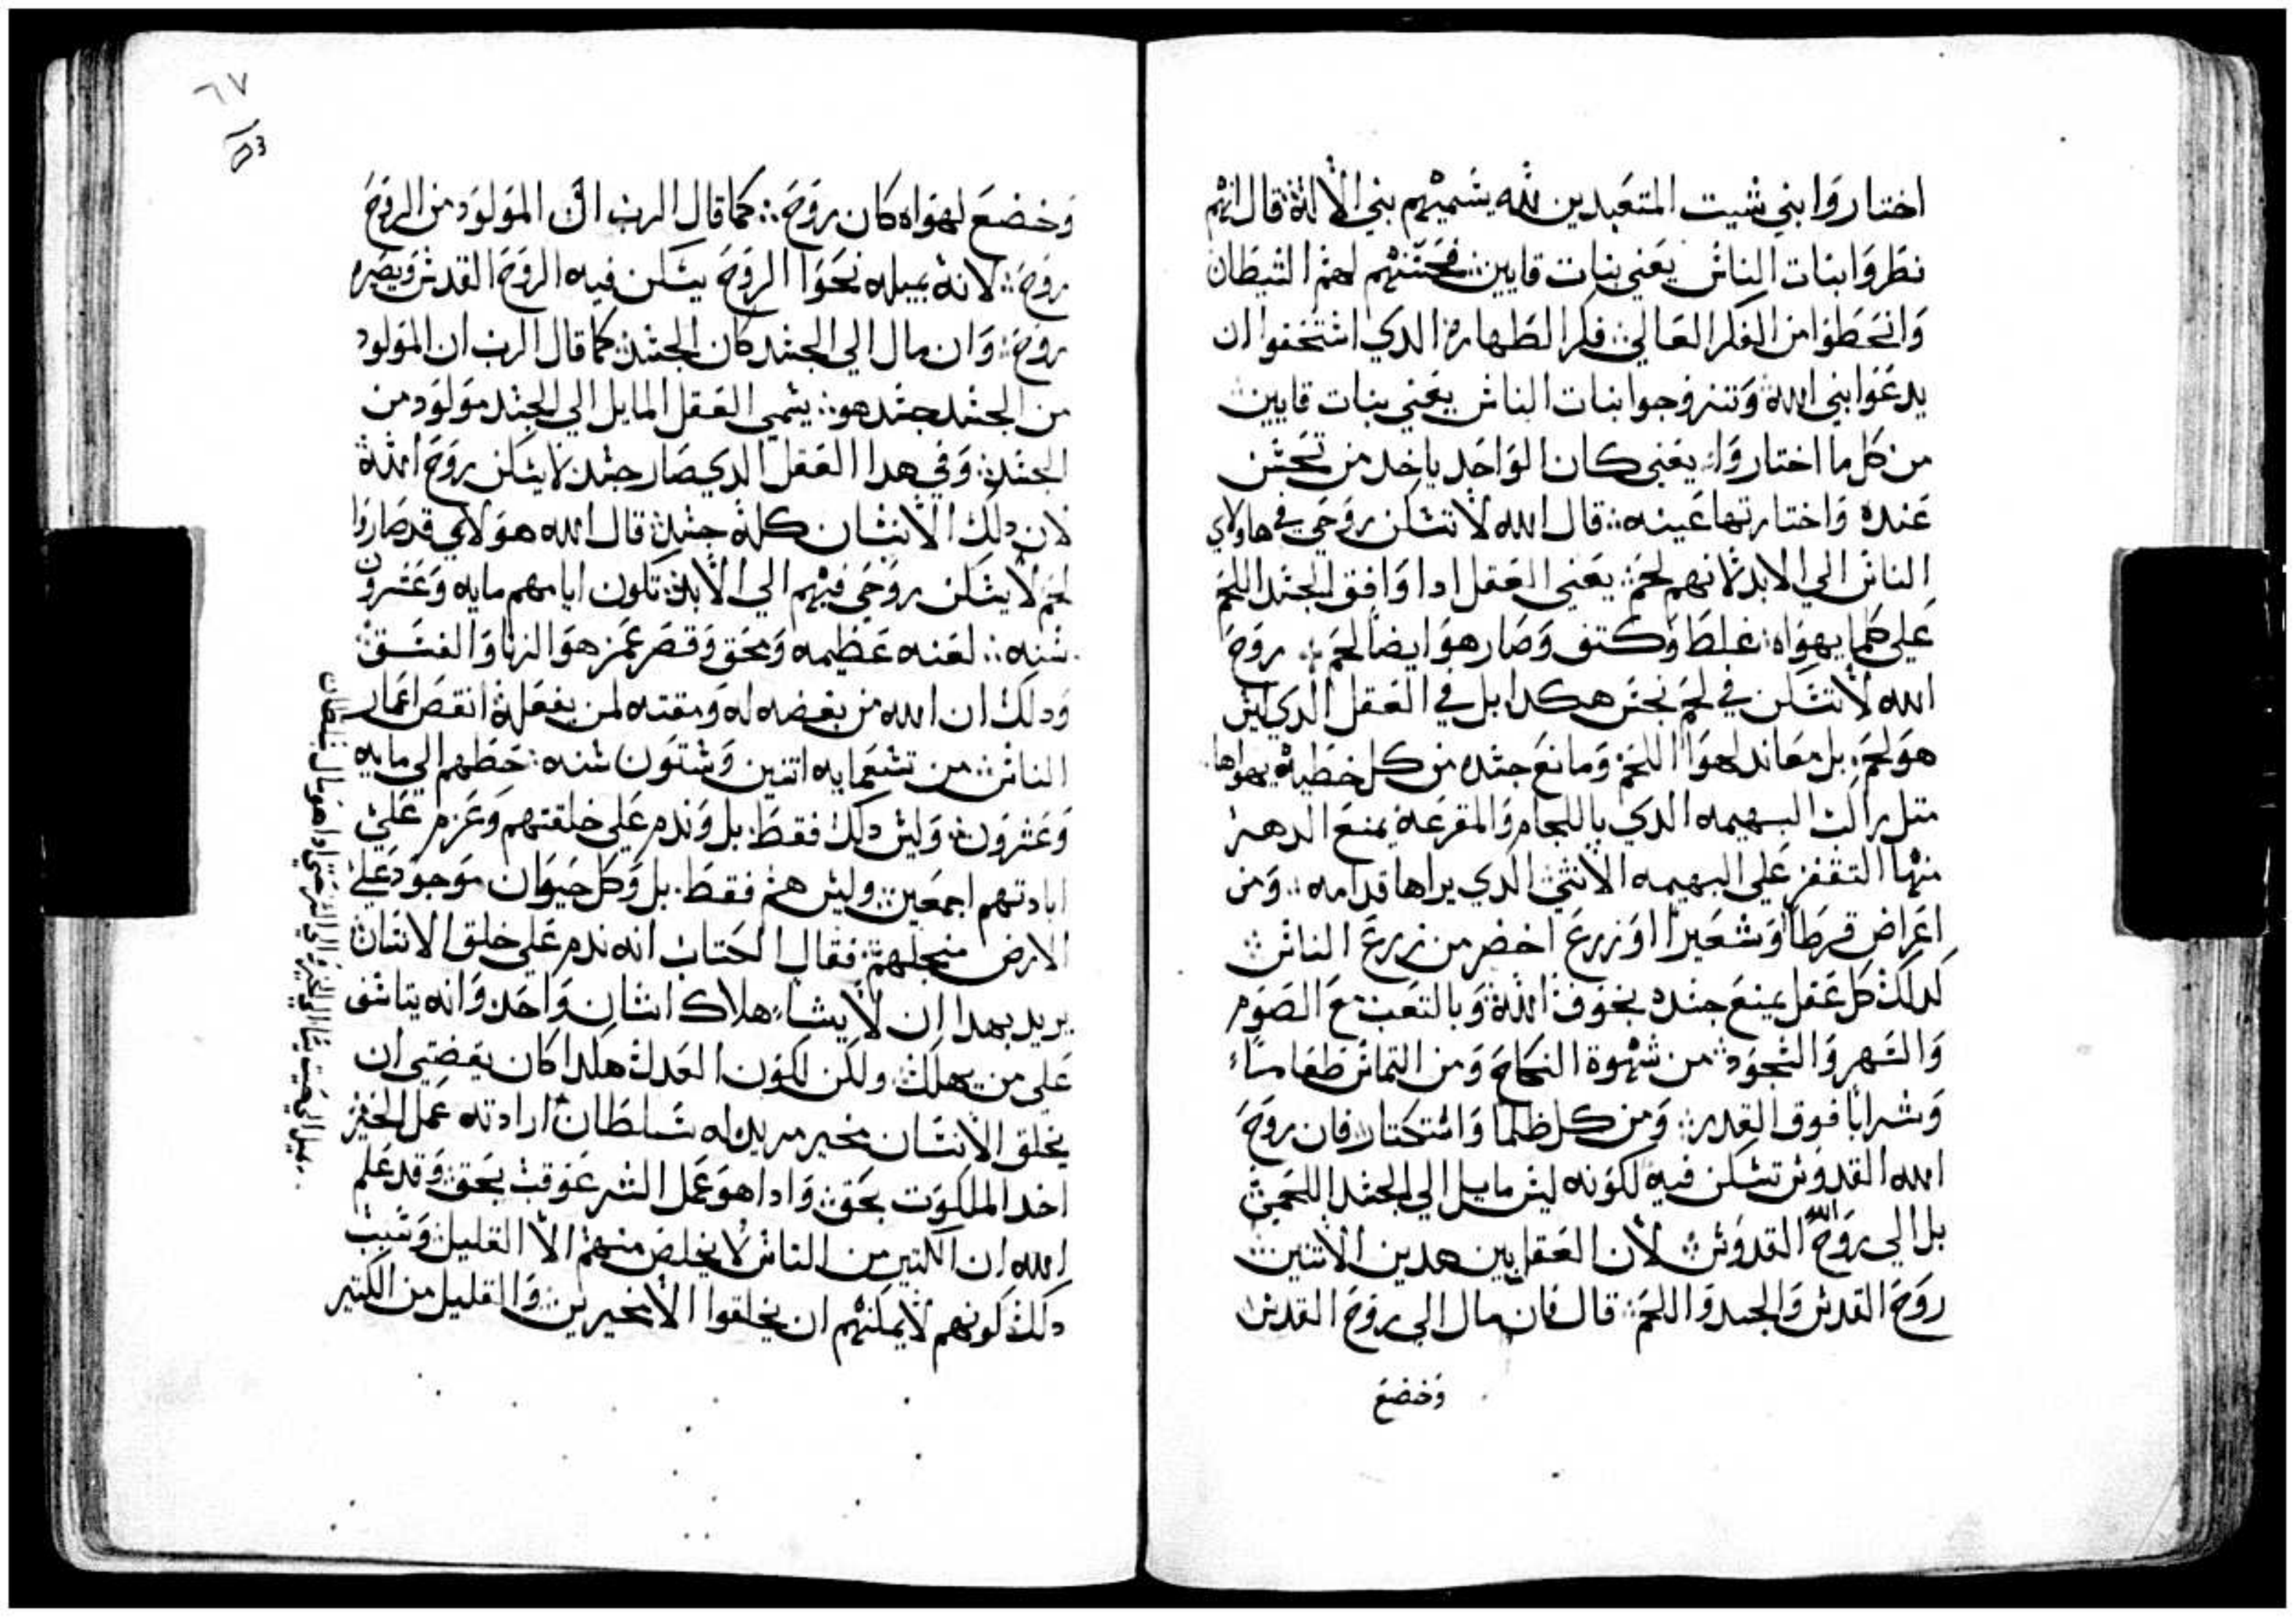 اختاروا بني شيت المتعبدين لله يسميهم بني الالاه قال انهم
نظروا بنات الناس يعني بنات قايين فحسنهم لهم الشيطان
وانحطوا من الفكر العالي فكر الطهاره الدي استحقوا ان
يدعوا بني الله وتزوجوا بنات الناس يعني بنات قايين
من كل ما اختاروا يعني كان الواحد ياخد من تحسن
عنده واختارتها عينه قال الله لا تسكن روحي في هاولاي
الناس الي الابد لانهم لحم يعني العقل ادا وافق الجسد اللحم
علي كلما يهواه غلظ وكتف وصار هو ايضا لحم روح
الله لا تسكن في لحم نجس هكدا بل في العقل الدي ليس
هو لحم بل معاند لهوا اللحم ومانع جسده من كل خطيه يهواها
متل راكب البهيمه الدي باللجام والمقرعه يمنع
منها التقفز علي البهيمه الانتي الدي يراها قدامه ومن
اعراض قرطا وشعيرا او زرع اخضر من زرع الناس
كدلك كل عقل يمنع جسده بخوف الله وبالتعب مع الصوم
والسهر والسجود من شهوة النكاح ومن التماس طعاما
وشرابا فوق القدر ومن كل ظلما واستكتار فان روح
الله القدوس تسكن فيه لكونه ليس مايل الي الجسد اللحمي
بل الي روح الله القدوس لان العقل بين هدين الاتنين
روح القدس والجسد واللحم قال فان مال الي روح القدس
وخضع
٦٧
وخضع لهواه كان روح كما قال الرب ان المولود من الروح
روح لانه بميله نحوا الروح يسكن فيه الروح القدس ويصيره
روح وان مال الي الجسد كان الجسد كما قال الرب ان المولود
من الجسد جسد هو يسمي العقل المايل الي الجسد مولود من
الجسد وفي هدا العقل الدي صار جسد لا يسكن روح الله
لان دلك الانسان كله جسد قال الله هولاي قد صاروا
لحم لا يسكن روحي فيهم الي الابد تكون ايامهم مايه وعشرون
سنه لعنه عظيمه ومحق وقصر عمر هو الزنا والفسق
ودلك ان الله من بغضه له ومقته لمن يفعله انقص اعمار
الناس من تسعمايه اتنين وستون سنه حطهم الي مايه
وعشرون وليس دلك فقط بل وندم علي خلقتهم وعزم علي
ابادتهم اجمعين وليس هم فقط بل وكل حيوان موجود علي
الارض منجلهم فقال الكتاب انه ندم علي خلق الانسان
يريد بهدا ان لا يشا هلاك انسان واحد وانه يتاسف
علي من يهلك ولكن لكون العدل هكدا كان يقضي ان
يخلق الانسان مخير مريد له سلطان ارادته عمل الخير
اخد الملكوت بحق وادا هو عمل الشر عوقب بحق وقد علم
الله ان الكتير من الناس لا يخلص منهم الا القليل وسبب
دلك كونهم لا يمكنهم ان يخلقوا الا مخيرين والقليل من الكتير